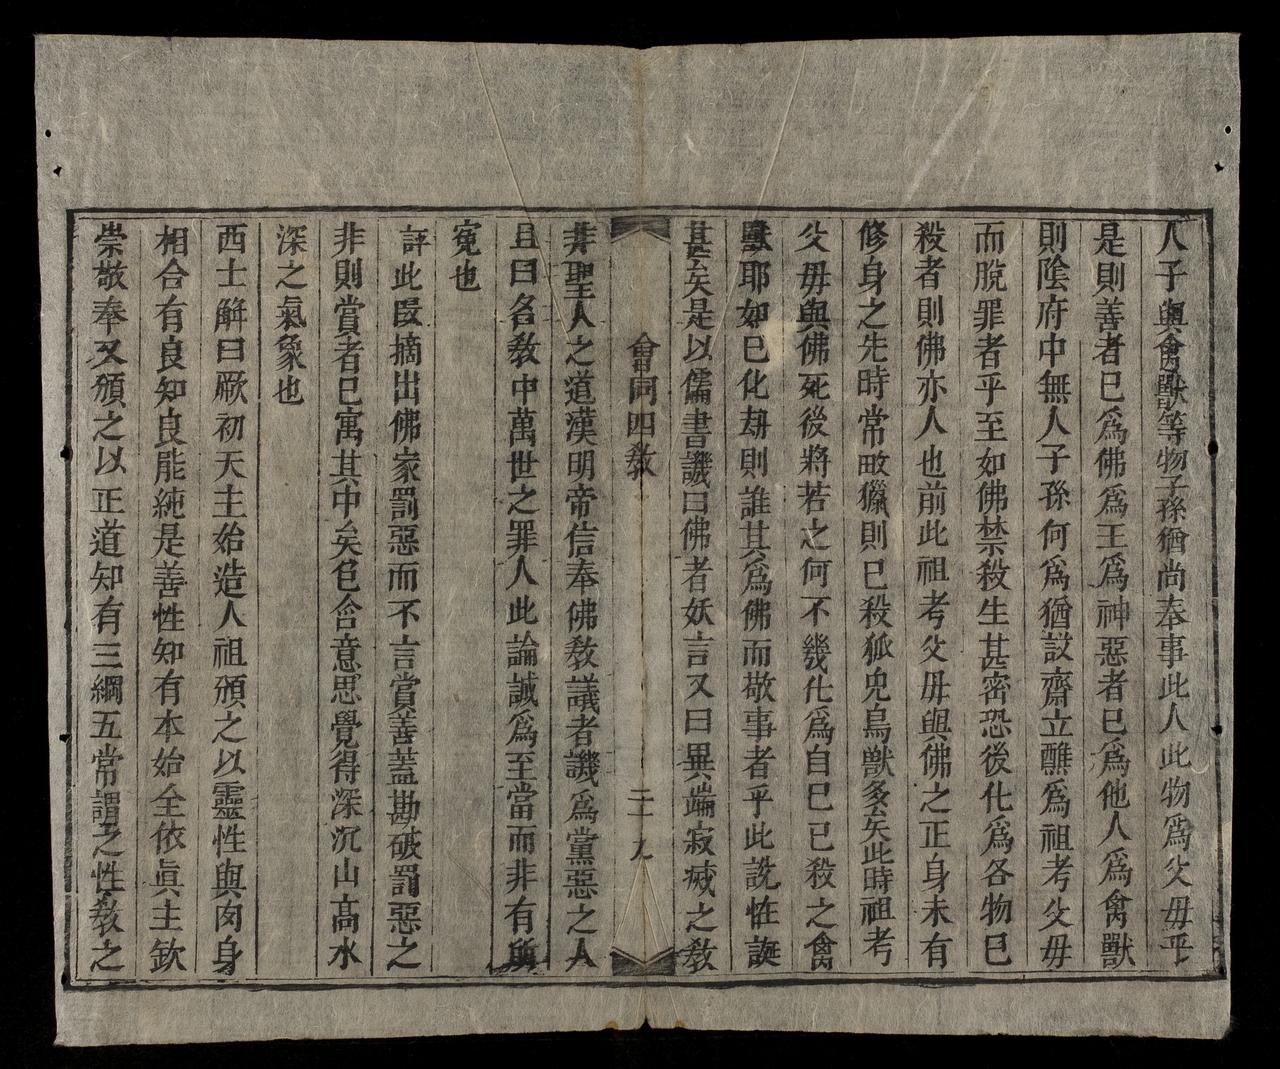 人子與禽獸等物子孫猶尚奉事此人此物爲父毋乎
是則善者巳爲佛爲王爲神惡者巳爲他人爲禽獸
則陰府中無人子孫何爲猶設齋立醮爲祖考父毋
而脫罪者乎至如佛禁殺生甚密恐後化爲各物巳
殺者則佛亦人也前此祖考父毋與佛之正身未有
修身之先時常畋獵則巳殺狐兎鳥獸多矣此時祖考
父毋與佛死後將若之何不幾化爲自巳巳殺之禽
獸耶如巳化刼則誰其爲佛而敬事者乎此說怪誕
甚矣是以儒書譏曰佛者妖言又曰異端寂滅之敎
會同四敎
二十九
非聖人之道漢明帝信奉佛敎議者譏爲黨惡之人
且曰名敎中萬世之罪人此論誠爲至當而非有所
寃也
評此段摘出佛家罰惡而不言賞善蓋勘破罰惡之
非則賞者巳寓其中矣包含意思覺得深沉山高水
深之氣象也
西士觧曰厥初天主始造人祖頒之以靈性與肉身
相合有良知良能純是善性知有本始全依眞主欽
崇敬奉又頒之以正道知有三綱五常謂之性敎之